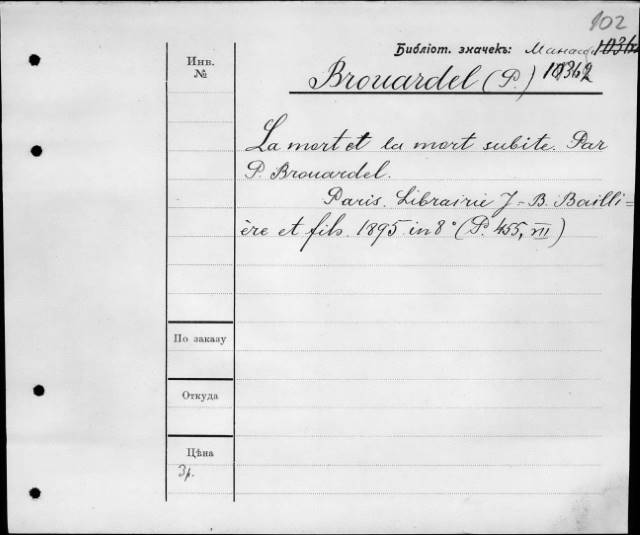 102
Библіот. значекъ: Манас
Инв.
№
Brouardel (P.) 10362
La mort et la mort subite. Par
P. Brouardel.
Paris. Librairie J.-B. Bailli=
ère et fils. 1895 in 8° (P. 455, VII)
По заказу
Откуда
Цѣна
3р.